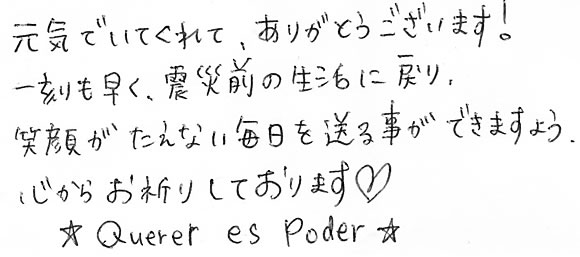 元気でいてくれて、ありがとうございます!
一刻も早く、震災前の生活に戻り、
笑顔がたえない毎日を送る事ができますよう、
心からお祈りしております♡
☆ Querer es Poder ☆